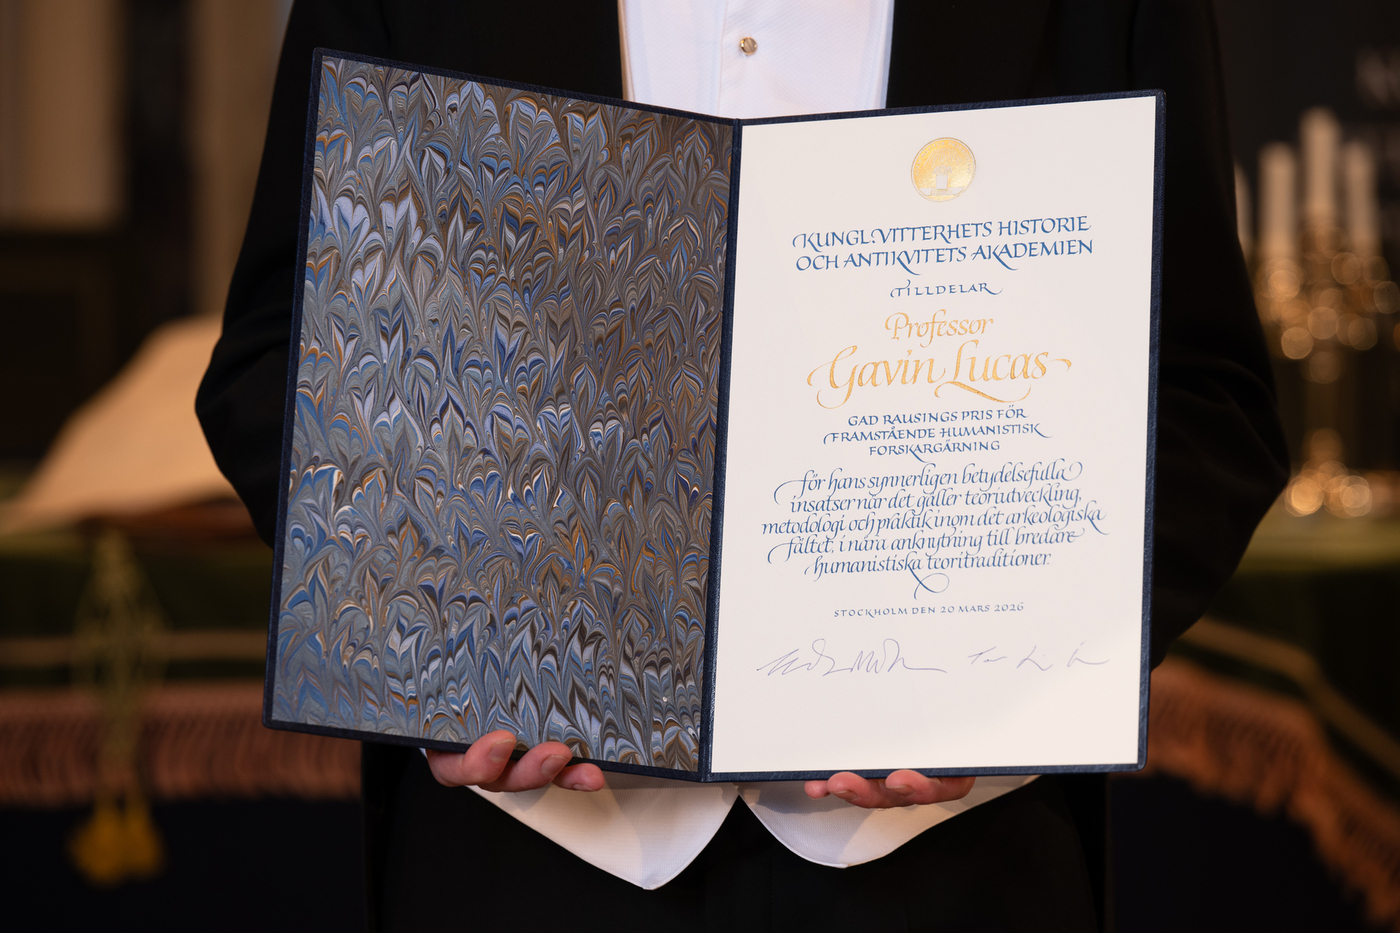 KUNGL. VITTERHETS HISTORIE
OCH ANTIKVITETS AKADEMIEN
TILLDELAR
Professor
Gavin Lucas
GAD RAUSINGS PRIS FÖR
FRAMSTÅENDE HUMANISTISK
FORSKARGÄRNING
för hans synnerligen betydelsefulla
insatser när det gäller teoriutveckling,
metodologi och praktik inom det arkeologiska
fältet, i nära anknytning till bredare
humanistiska teoritraditioner.
STOCKHOLM DEN 20 MARS 2026